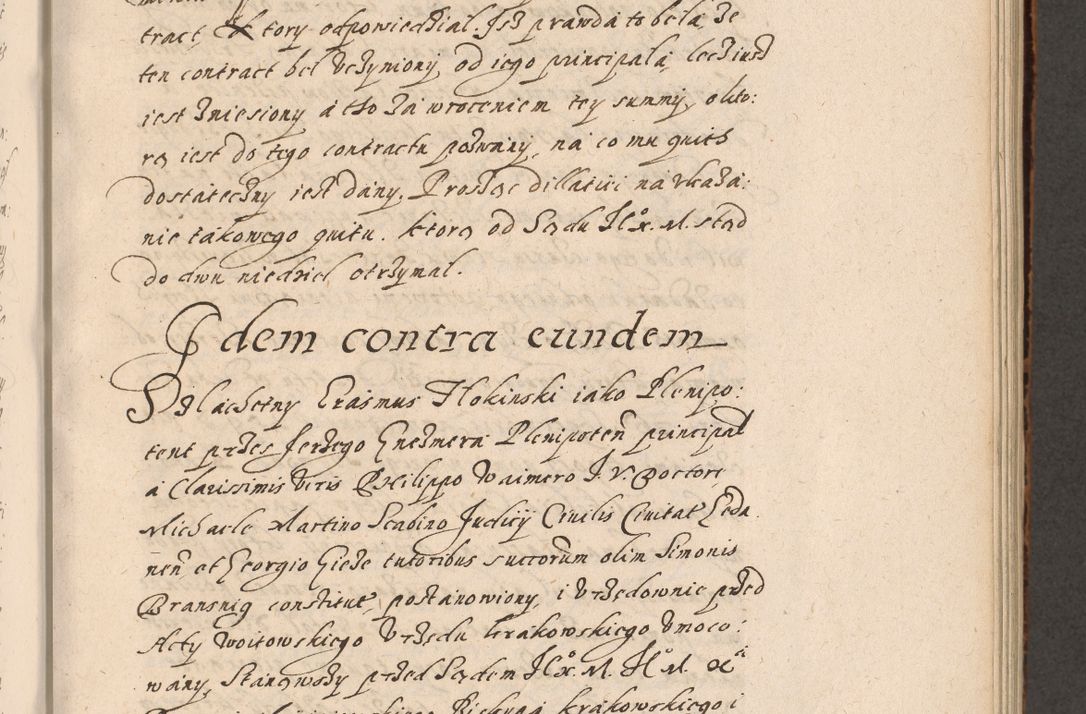 tract, Ktory odpowiedzial. Jsz prawda to bela, ze
ten contract bel vczyniony, od iego principala, lecz iusz
iest zniesiony a tho za wroceniem tey summy, o kto:
rą iest do tego contractu pozwany, na co mu quith
dostateczny iest dany. Prosząc dillatiei na vkaza:
nie takowego quitu. Ktorą od Sądu Jlx. M. stąd
do dwu niedziel otrzymal.
Idem contra eundem
Szlachetny Erasmus Tlokinski iako Plenipo:
tent przes Jerzego Gnezmera Plenipoten principal
a Clarissimis Viris Philippo Waimero J. V. Doctore,
Michaele Martino Scabino Judicÿ Civilis Civitat Geda
nen, et Georgio Gieze tutoribus succorum olim Simonis
Bransnig constitut, postanowiony, i Vrzędownie przed
Acty Woitowskiego Vrzędu krakowskiego Vmoco:
wany, Stanąwszy przed Sądem Jlx. M. Jl M. X
Biskupa krakowskiego i